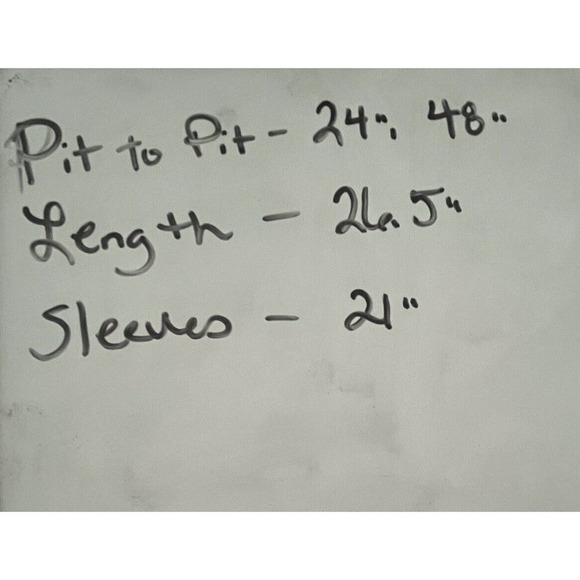 Pit to Pit - 24", 48"
Length - 26.5"
Sleeves - 21"